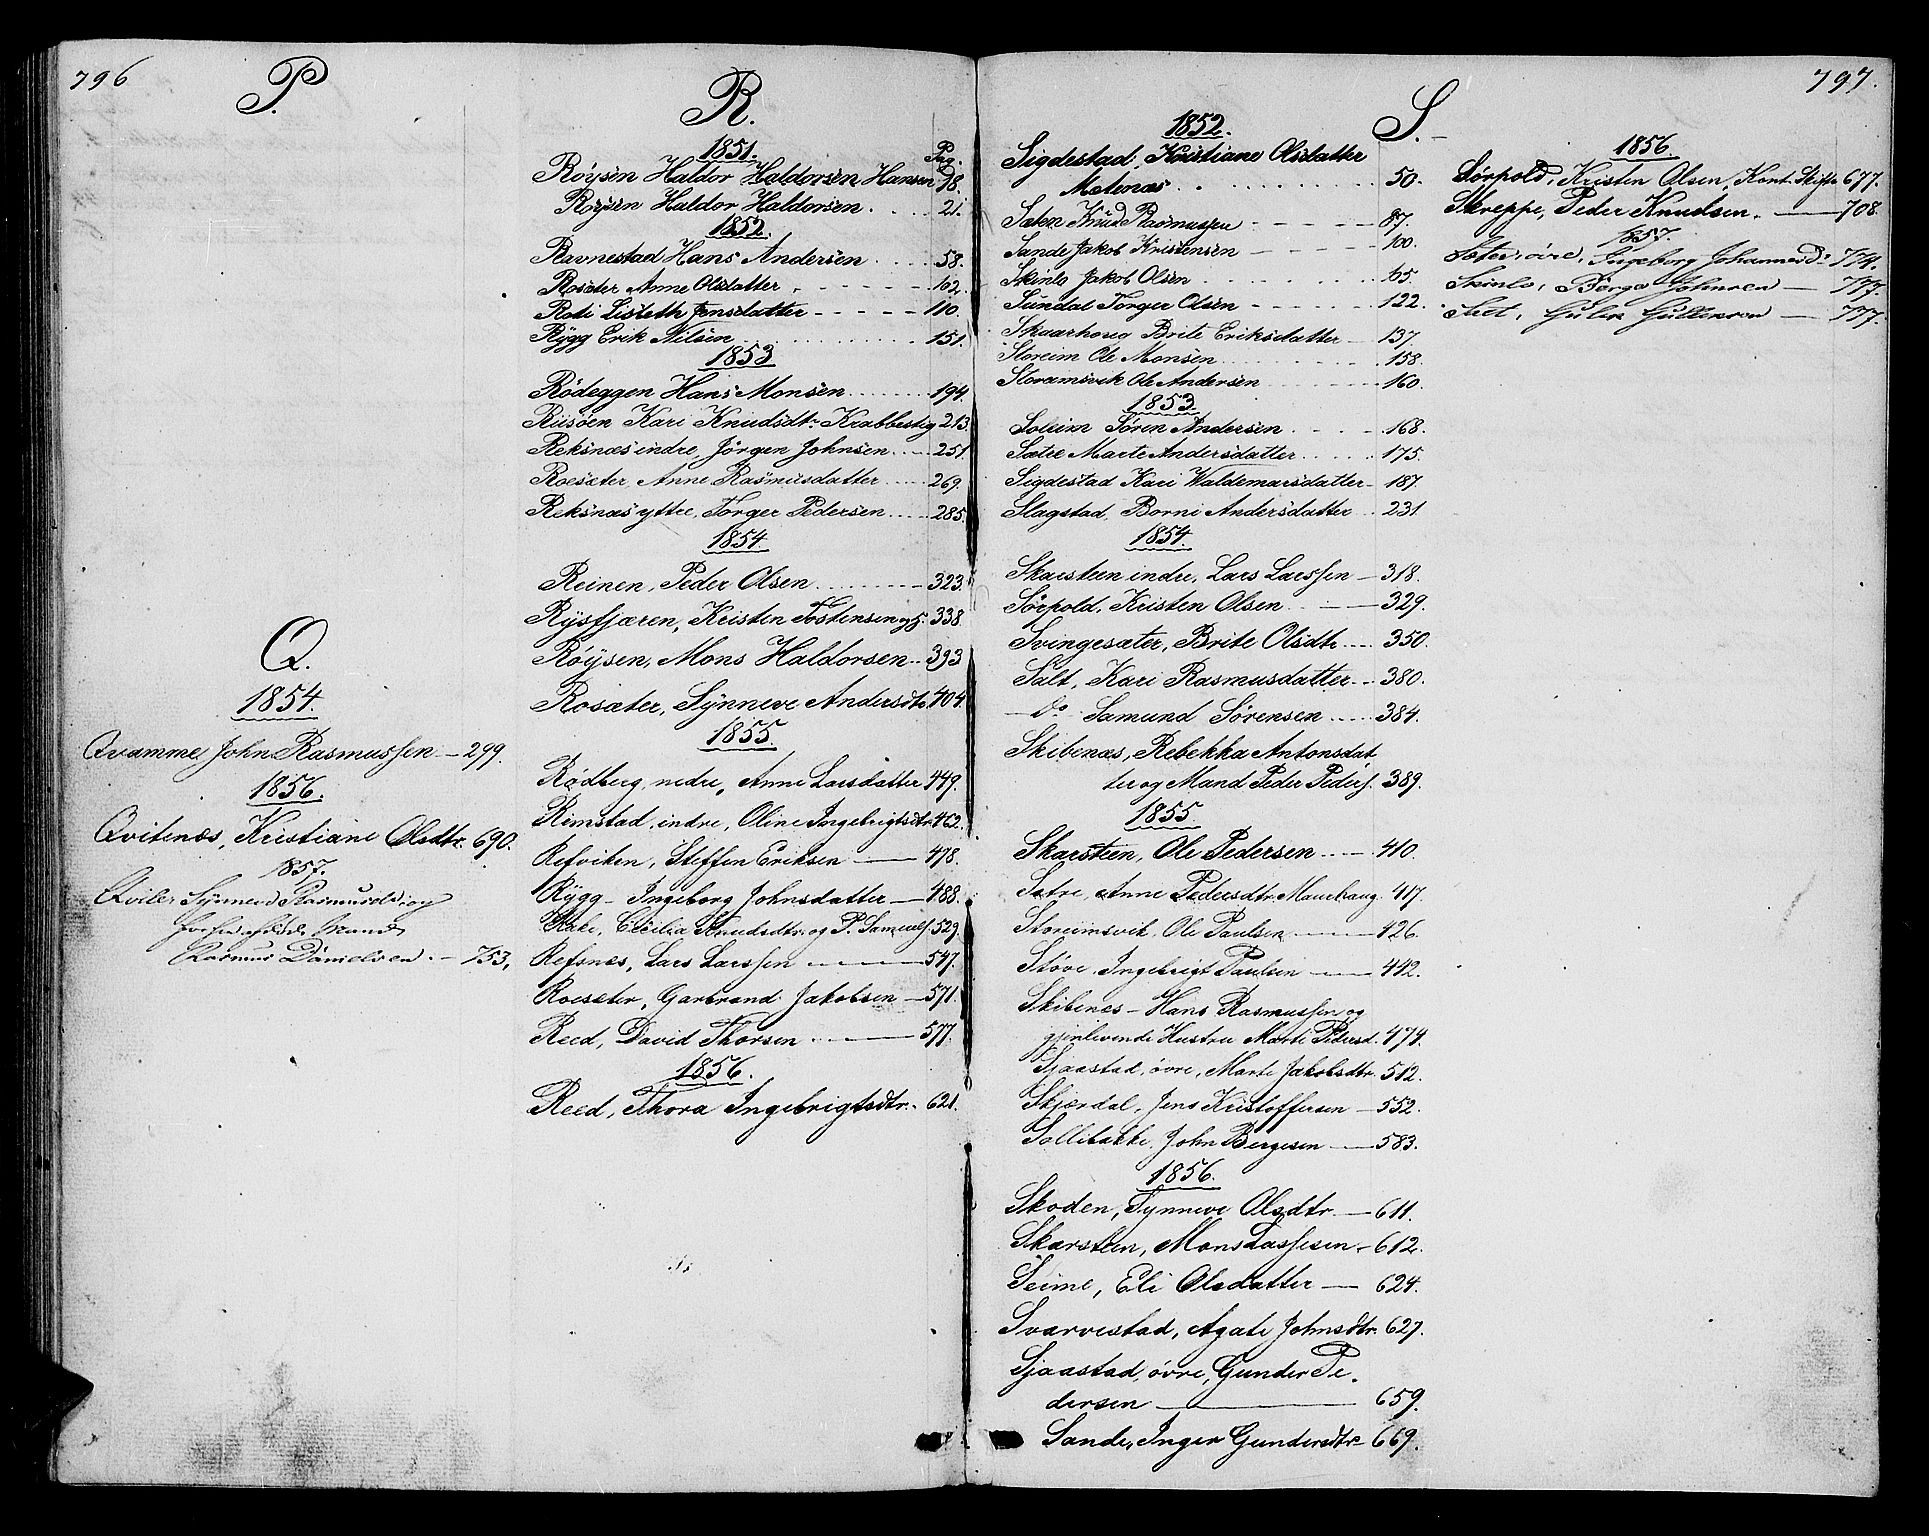 796
P.
Q.
1854.
Qvamme, John Rasmussen — 299.
1856.
Qvitenæs, Kristiane Olsdtr. 690.
1857.
Qvile, Synneve Rasmusd. og
Mand
Rasmus Danielsen — 753.
R.
1851. Pag.
Røysen Haldor Haldorsen Hansen 18.
Røysen Haldor Haldorsen . . . 21.
1852.
Ravnestad Hans Andersen . . . 58.
Rosæter Anne Olsdatter . - - - 102.
Roti Lisbeth Jensdatter - - - - - 110.
Rygg Erik Nilsen . . . . . . 151.
1853
Rödeggen Hans Monsen . . . . . 194.
Riisöen Kari Knudsdtr. Krabbestig 213.
Reksnæs indre, Jörgen Johnsen . . . 251.
Roesæter, Anne Rasmusdatter . . . . 269.
Reksnæs yttre, Torger Pedersen . . . . 285.
1854.
Reinen, Peder Olsen . . . . . . . 323.
Rysfjæren, Kristen Tostensen og H. 338.
Røysen, Mons Haldorsen . . 393
Rosæter, Synneve Andersdtr. 404.
1855.
Rødberg nedre, Anne Larsdatter 449.
Rimstad indre, Oline Ingebrigtsdtr. 462.
Refviken, Steffen Eriksen — 478.
Rygg - Ingeborg Johnsdatter — 488.
Rake, Cecilia Knudsdtr. og P. Samuels. 529.
Refsnes, Lars Larssen — 547.
Roesæter, Garbrand Jakobsen — 571.
Reed, David Thorsen — 577.
1856.
Reed, Thora Ingebrigtsdtr. 621.
797.
S.
1852.
Sigdestad, Kristiane Olsdatter
Melenæs . . . . . . . . 50.
Saten Knud Rasmussen - - - - 87.
Sande Jakob Kristensen - - - 100.
Skinlo Jakob Olsen . . . . . . 65.
Sundal Torger Olsen - - - - - 122.
Skaarhoug Brite Eriksdatter - 137.
Storeim Ole Monsen . . . . . 158.
Storeimsvik Ole Andersen . . . 160.
1853.
Soleim Sören Andersen . . . . 168.
Sætre Marte Andersdatter . . . . . 175.
Sigdestad Kari Waldemarsdatter - 187.
Slagstad, Borni Andersdatter . . 231.
1854.
Skarsteen indre, Lars Larssen — 318.
Sörpold, Kristen Olsen . . — 329.
Svingesæter, Brite Olsdtr. . . . 350.
Salt, Kari Rasmusdatter . . . 380.
— do Samund Sørensen . . . . . 384.
Skibenæs, Rebekka Antonsdat
ter og Mand Peder Peders. 389.
1855.
Skarsteen, Ole Pedersen . . . — 410.
Sætre, Anne Pedersdtr. Maurhaug. 417.
Storeimsvik, Ole Paulsen — 426.
Støve, Ingebrigt Paulsen — 442.
Skibenæs - Hans Rasmussen og
gjenlevende Hustru Marte Pedersd. 474.
Sjaastad, övre, Marte Jakobsdtr. 512.
Skjerdal, Jens Kristoffersen — 552.
Sollibakke, John Bergesen — 583.
1856.
Skoden, Synneve Olsdtr. — 611.
Skarsteen, Mons Lassesen — 612.
Seime, Eli Olsdatter — 624.
Svarvestad, Agate Johnsdtr. 627.
Sjaastad, övre, Gunder Pe.
dersen — 659.
Sande, Inger Gundersdtr. 669.
1856.
Sørpold, Kristen Olsen, Kont. Skifte 677.
Skreppe, Peder Knudsen. — 708.
1857.
Ingeborg Johannesd. 774.
Skinlo, Børge Johnsen — 777.
Gulik Gullensen — 777.